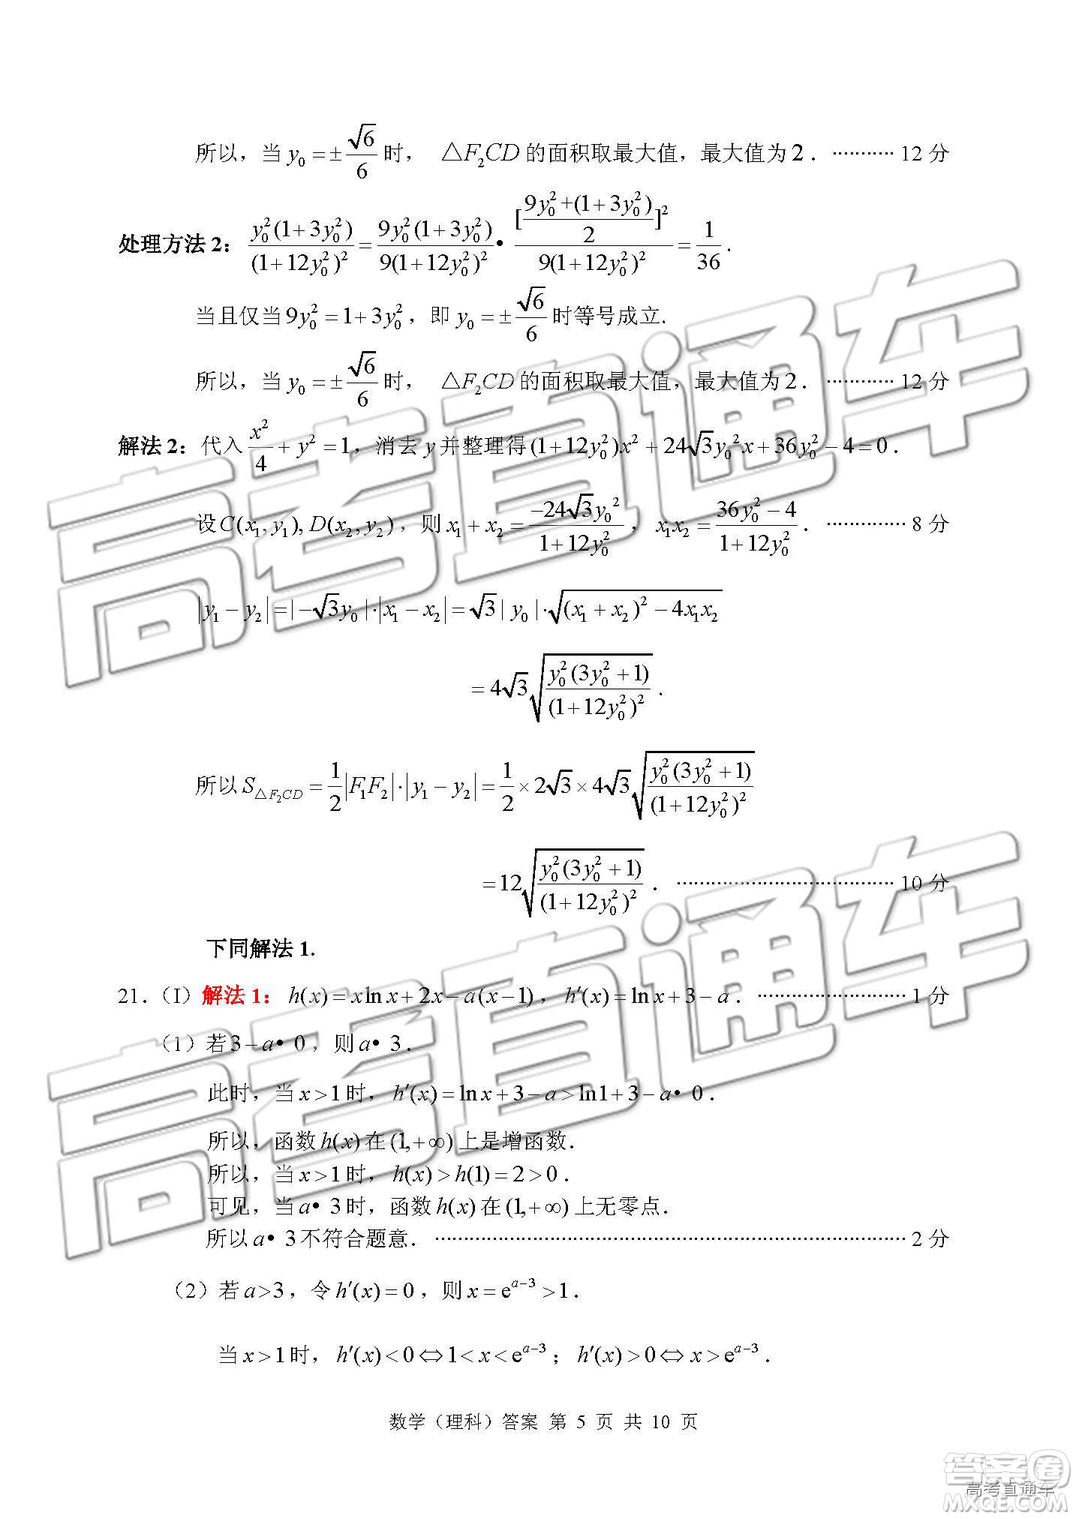 所以，当 $y_0=\pm\frac{\sqrt{6}}{6}$ 时， $\triangle F_2CD$ 的面积取最大值，最大值为 2．··········· 12 分
处理方法 2： $\frac{y_0^2(1+3y_0^2)}{(1+12y_0^2)^2}=\frac{9y_0^2(1+3y_0^2)}{9(1+12y_0^2)^2}•\frac{[\frac{9y_0^2+(1+3y_0^2)}{2}]^2}{9(1+12y_0^2)^2}=\frac{1}{36}$．
当且仅当 $9y_0^2=1+3y_0^2$，即 $y_0=\pm\frac{\sqrt{6}}{6}$ 时等号成立.
所以，当 $y_0=\pm\frac{\sqrt{6}}{6}$ 时， $\triangle F_2CD$ 的面积取最大值，最大值为 2．············ 12 分
解法 2：代入 $\frac{x^2}{4}+y^2=1$，消去 y 并整理得 $(1+12y_0^2)x^2+24\sqrt{3}y_0^2x+36y_0^2-4=0$．
设 $C(x_1,y_1),D(x_2,y_2)$，则 $x_1+x_2=\frac{-24\sqrt{3}y_0^2}{1+12y_0^2}$， $x_1x_2=\frac{36y_0^2-4}{1+12y_0^2}$．·············· 8 分
$|y_1-y_2|=|-\sqrt{3}y_0|\cdot|x_1-x_2|=\sqrt{3}|y_0|\cdot\sqrt{(x_1+x_2)^2-4x_1x_2}$
$=4\sqrt{3}\sqrt{\frac{y_0^2(3y_0^2+1)}{(1+12y_0^2)^2}}$．
所以 $S_{\triangle F_2CD}=\frac{1}{2}|F_1F_2|\cdot|y_1-y_2|=\frac{1}{2}\times2\sqrt{3}\times4\sqrt{3}\sqrt{\frac{y_0^2(3y_0^2+1)}{(1+12y_0^2)^2}}$
$=12\sqrt{\frac{y_0^2(3y_0^2+1)}{(1+12y_0^2)^2}}$．······································ 10 分
下同解法 1.
21．（I）解法 1： $h(x)=x\ln x+2x-a(x-1)$， $h'(x)=\ln x+3-a$．·························· 1 分
（1）若 $3-a•0$，则 $a•3$．
此时，当 $x>1$ 时， $h'(x)=\ln x+3-a>\ln1+3-a•0$．
所以，函数 $h(x)$ 在 $(1,+\infty)$ 上是增函数．
所以，当 $x>1$ 时， $h(x)>h(1)=2>0$．
可见，当 $a•3$ 时，函数 $h(x)$ 在 $(1,+\infty)$ 上无零点．
所以 $a•3$ 不符合题意．··················································································· 2 分
（2）若 $a>3$，令 $h'(x)=0$，则 $x=e^{a-3}>1$．
当 $x>1$ 时， $h'(x)<0\Leftrightarrow1<x<e^{a-3}$； $h'(x)>0\Leftrightarrow x>e^{a-3}$．
数学（理科）答案 第 5 页 共 10 页
高考直通车
高考直通车
答案圈
高考直通车
MXQE.COM